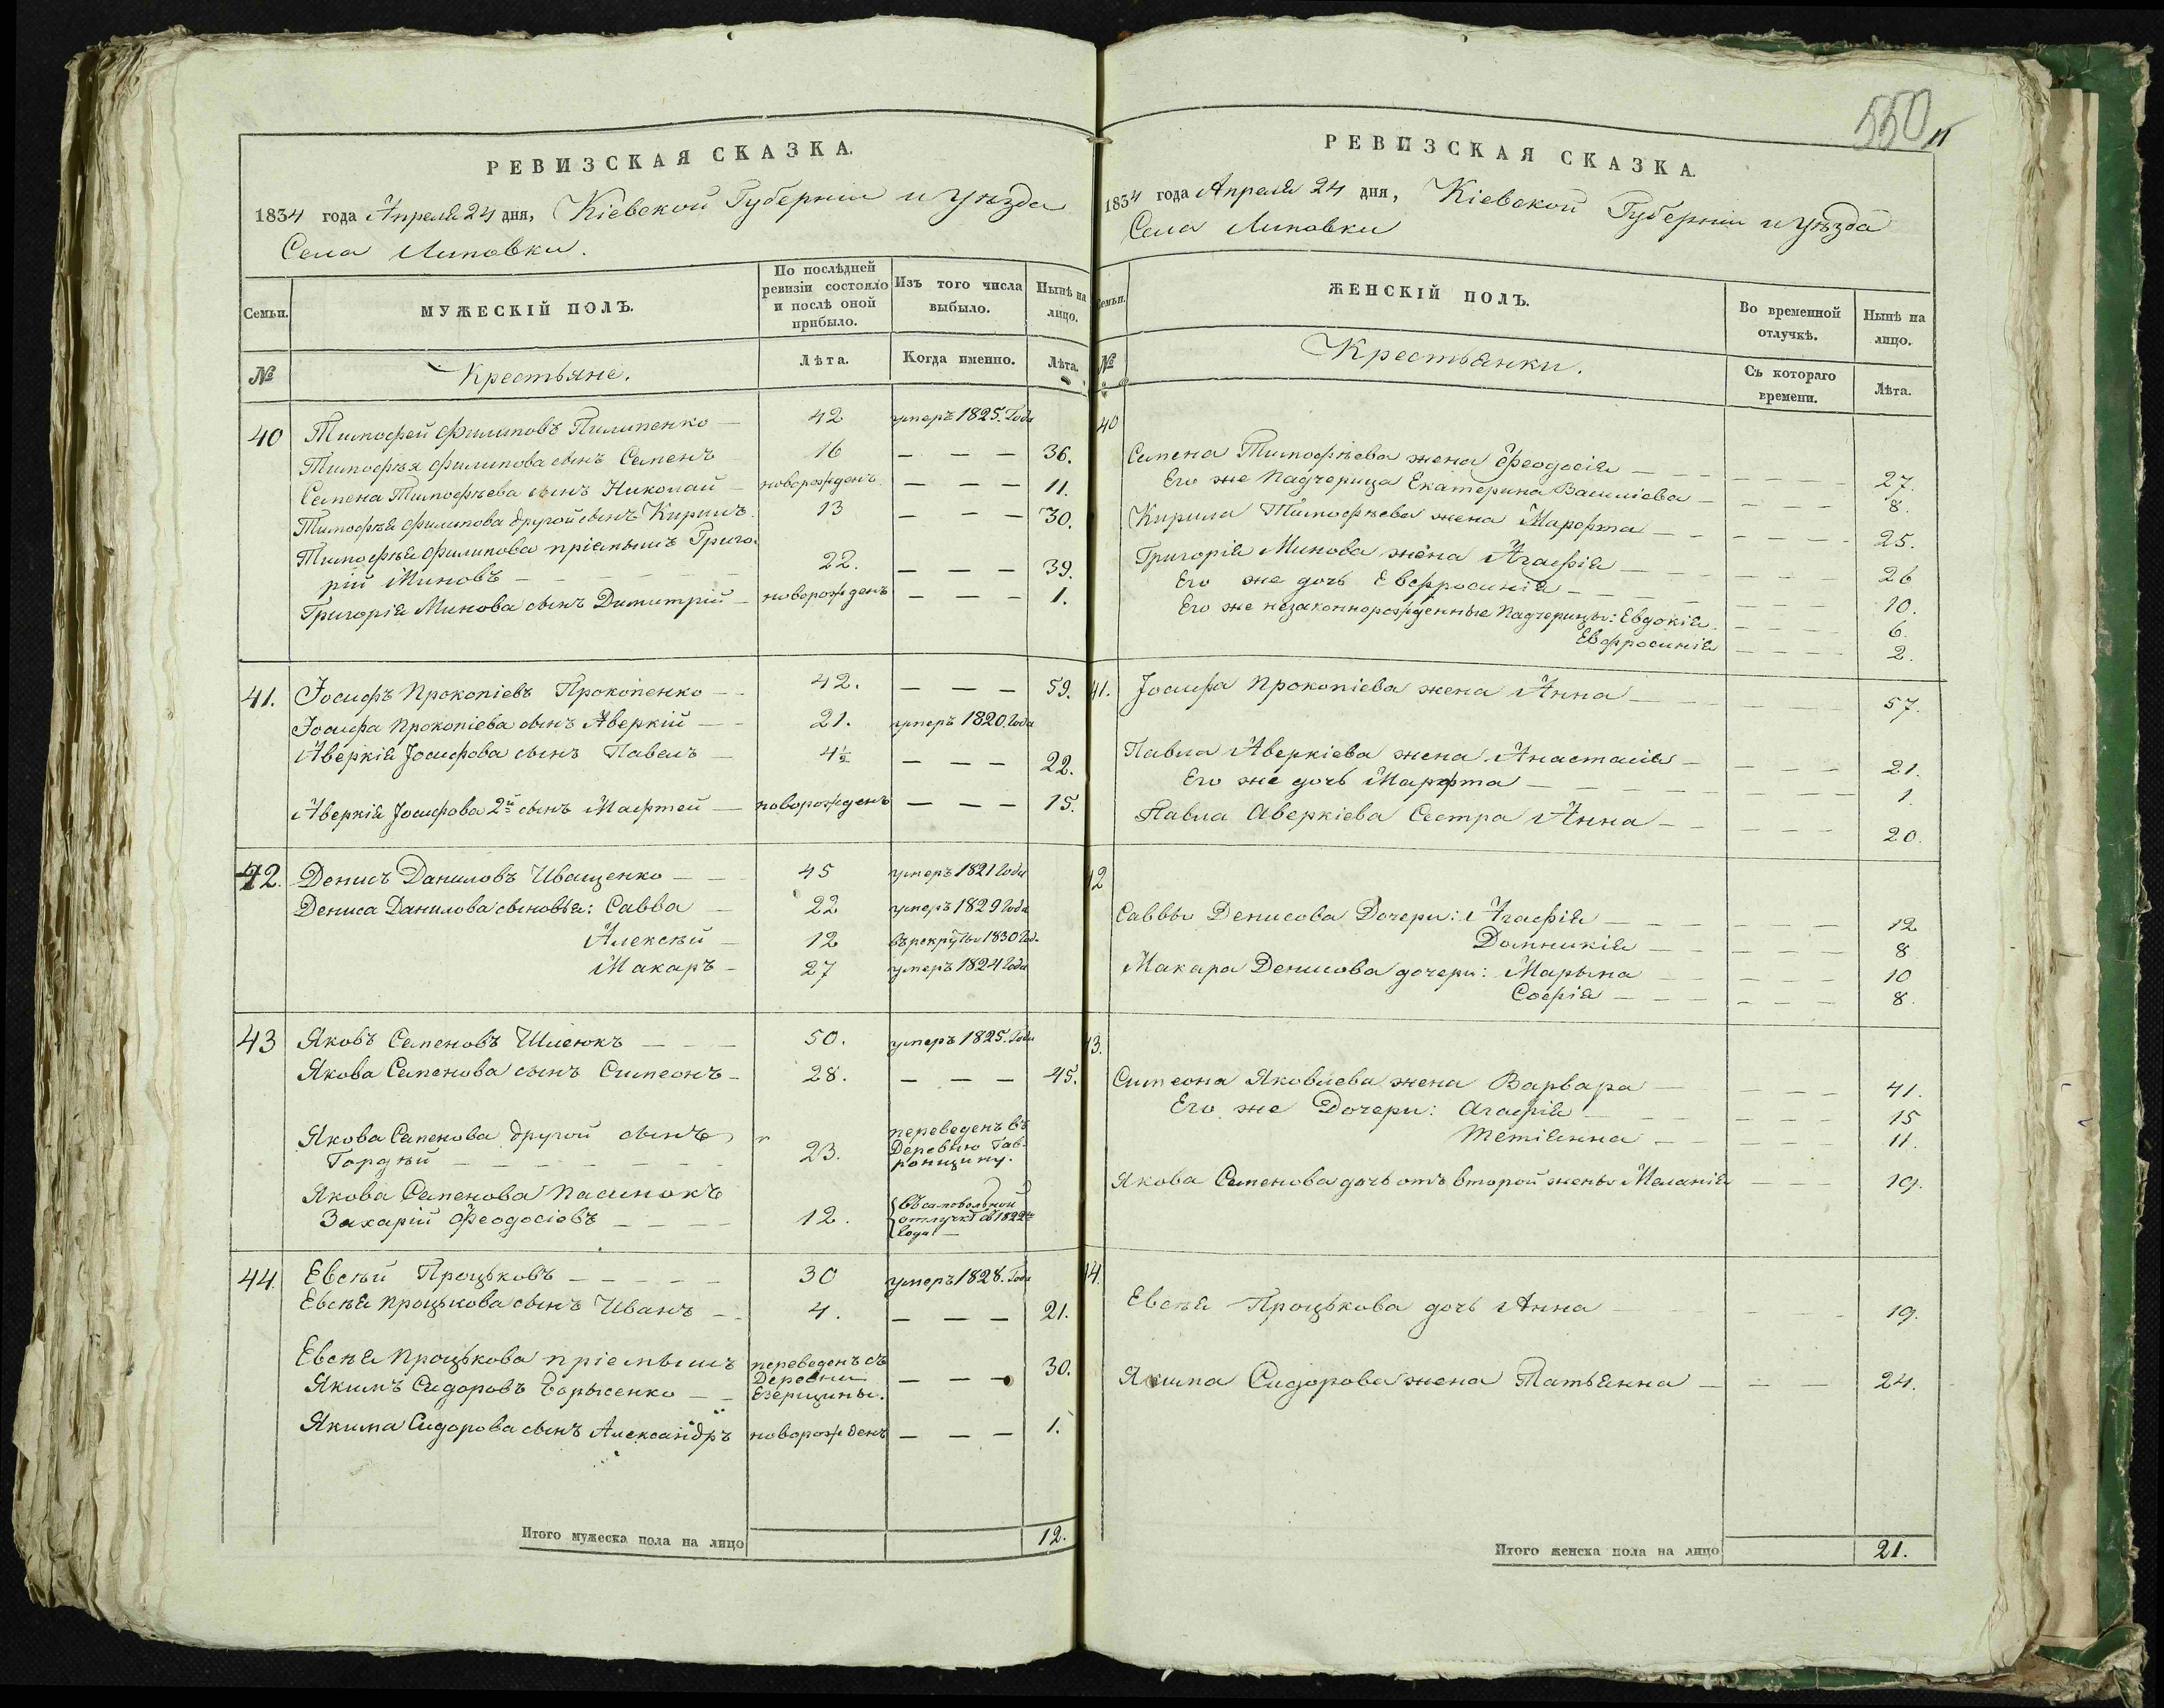 РЕВИЗСКАЯ СКАЗКА.
1834 года Апреля 24 дня, Кіевской Губерніи и Уѣзда
Села Липовки.
Семьи.
МУЖЕСКІЙ ПОЛЪ.
По послѣдней ревизіи состояло и послѣ оной прибыло.
Изъ того числа выбыло.
Нынѣ на лицо.
№
Крестьяне.
Лѣта.
Когда именно.
Лѣта.
40 Тимофей Филиповъ Пилипенко — 42 умеръ 1825. Года
Тимофѣя Филипова сынъ Семенъ 16 — — — 36.
Семена Тимофѣева сынъ Николай — новорожденъ — — — 11.
Тимофѣя Филипова другой сынъ Кирилъ 13 — — — 30.
Тимофѣя Филипова пріемышъ Григо-
рій Миновъ — — — 22. — — — 39.
Григорія Минова сынъ Димитрій — новорожденъ — — — 1.
41. Іосифъ Прокопіевъ Прокопенко — — 42. — — — 59.
Іосифа Прокопіева сынъ Аверкій — — 21. умеръ 1820. Года
Аверкія Іосифова сынъ Павелъ — 4½ — — — 22.
Аверкія Іосифова 2й сынъ Мафтей — новорожденъ — — — 15.
42. Денисъ Даниловъ Иващенко — — 45 умеръ 1821 Года
Дениса Данилова сыновья: Савва — 22 умеръ 1829 Года
Алексѣй — 12 въ рекруты 1830 Год.
Макаръ — 27 умеръ 1824 Года
43 Яковъ Семеновъ Шлеюкъ — — — 50. умеръ 1825. Года
Якова Семенова сынъ Симеонъ — 28. — — — 45.
Якова Семенова другой сынъ
Гордѣй — — — — — — 23. переведенъ въ
Деревню Гав-
ронщину.
Якова Семенова Пасинокъ
Захарій Феодосіевъ — — — — 12. Въ самовольной
отлучкѣ съ 1822го
Года —
44. Евсѣй Процьковъ — — — — — 30 умеръ 1828. Года
Евсѣя Процькова сынъ Иванъ — — 4. — — — 21.
Евсѣя Процькова пріемышъ
Якимъ Сидоровъ Борысенко — — переведенъ съ
Деревни
Езерщины. — — — 30.
Якима Сидорова сынъ Александръ новорожденъ — — — 1.
Итого мужеска пола на лицо 12.
550
11
РЕВИЗСКАЯ СКАЗКА.
1834 года Апреля 24 дня, Кіевской Губерніи и Уѣзда
Села Липовки
Семьи.
ЖЕНСКІЙ ПОЛЪ.
Во временной отлучкѣ.
Нынѣ на лицо.
№
Крестьянки.
Съ котораго времени.
Лѣта.
40
Семена Тимофѣева жена Феодосія — — — — — — 27.
Его же Падчерица Екатерина Василіева — — — — 8.
Кирила Тимофѣева жена Марфта — — — — — — 25.
Григорія Минова жена Агафія — — — — — — 26
Его же дочь Евфросинія — — — — — — 10.
Его же незаконнорожденные Падчерицы: Евдокія — — — — 6.
Евфросинія — — — — 2.
41. Іосифа Прокопіева жена Анна — — — — — — 57.
Павла Аверкіева жена Анастасія — — — — 21.
Его же дочь Марфта — — — — — — 1.
Павла Аверкіева Сестра Анна — — — — — 20.
42
Саввы Денисова Дочери: Агафія — — — — 12
Домникія — — — — — 8
Макара Денисова дочери: Марына — — — — — 10
Софія — — — — — — 8.
43.
Симеона Яковлева жена Варвара — — — — 41.
Его же Дочери: Агафія — — — — 15
Тетіянна — — — — — 11.
Якова Семенова дочь отъ второй жены Меланія — — — 19.
44.
Евсѣя Процькова дочь Анна — — — — 19.
Якима Сидорова жена Татьянна — — — — 24.
Итого женска пола на лицо 21.